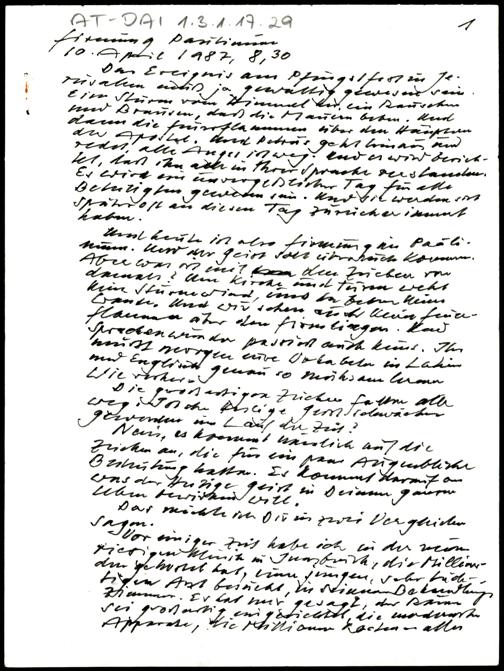 AT-DAI 1.3.1.17.29
1
Firmung Paulinum
10. April 1987, 8,30
Das Ereignis am Pfingstfest in Je-
rusalem muß ja gewaltig gewesen sein.
Ein Sturm vom Himmel her, ein Rauschen
und Brausen, daß die Mauern beben. Und
dann die Feuerflammen über den Häuptern
der Apostel. Und Petrus geht hinaus und
redet, alle Angst ist weg. Und es wird berich-
tet, daß ihn alle in ihrer Sprache verstanden.
Es wird ein unvergeßlicher Tag für alle
Beteiligten gewesen sein. Und sie werden sich
später oft an diesen Tag zurückerinnert
haben.
Und heute ist also Firmung im Pauli-
num. Und der Geist soll über euch kommen.
Aber was ist mit den Zeichen von
damals? Um Kirche und Turm weht
kein Sturmwind, und da beben keine
Wände. Und wir sehen auch keine Feuer-
flammen über den Firmlingen. Und
Sprachenwunder passiert auch keins. Ihr
müßt morgen eure Vokabeln in Latein
und Englisch genau so mühsam lernen
wie vorher.
Die großartigen Zeichen fallen alle
weg. Ist der Heilige Geist schwächer
geworden im Lauf der Zeit?
Nein, es kommt nämlich auf die
Zeichen an, die für ein paar Augenblicke
Bedeutung hatten. Es kommt darauf an
was der Heilige Geist in Deinem ganzen
Leben bewirken will.
Das möchte ich Dir in zwei Vergleichen
sagen.
Vor einiger Zeit habe ich in der neuen
riesigen Klinik in Innsbruck, die Millia-
den gekostet hat, einen jungen, sehr tüch-
tigen Arzt besucht, in seinem Behandlungs-
zimmer. Er hat mir gesagt, der Raum
sei großartig eingerichtet, die modernsten
Apparate, die Millionen kosten alles